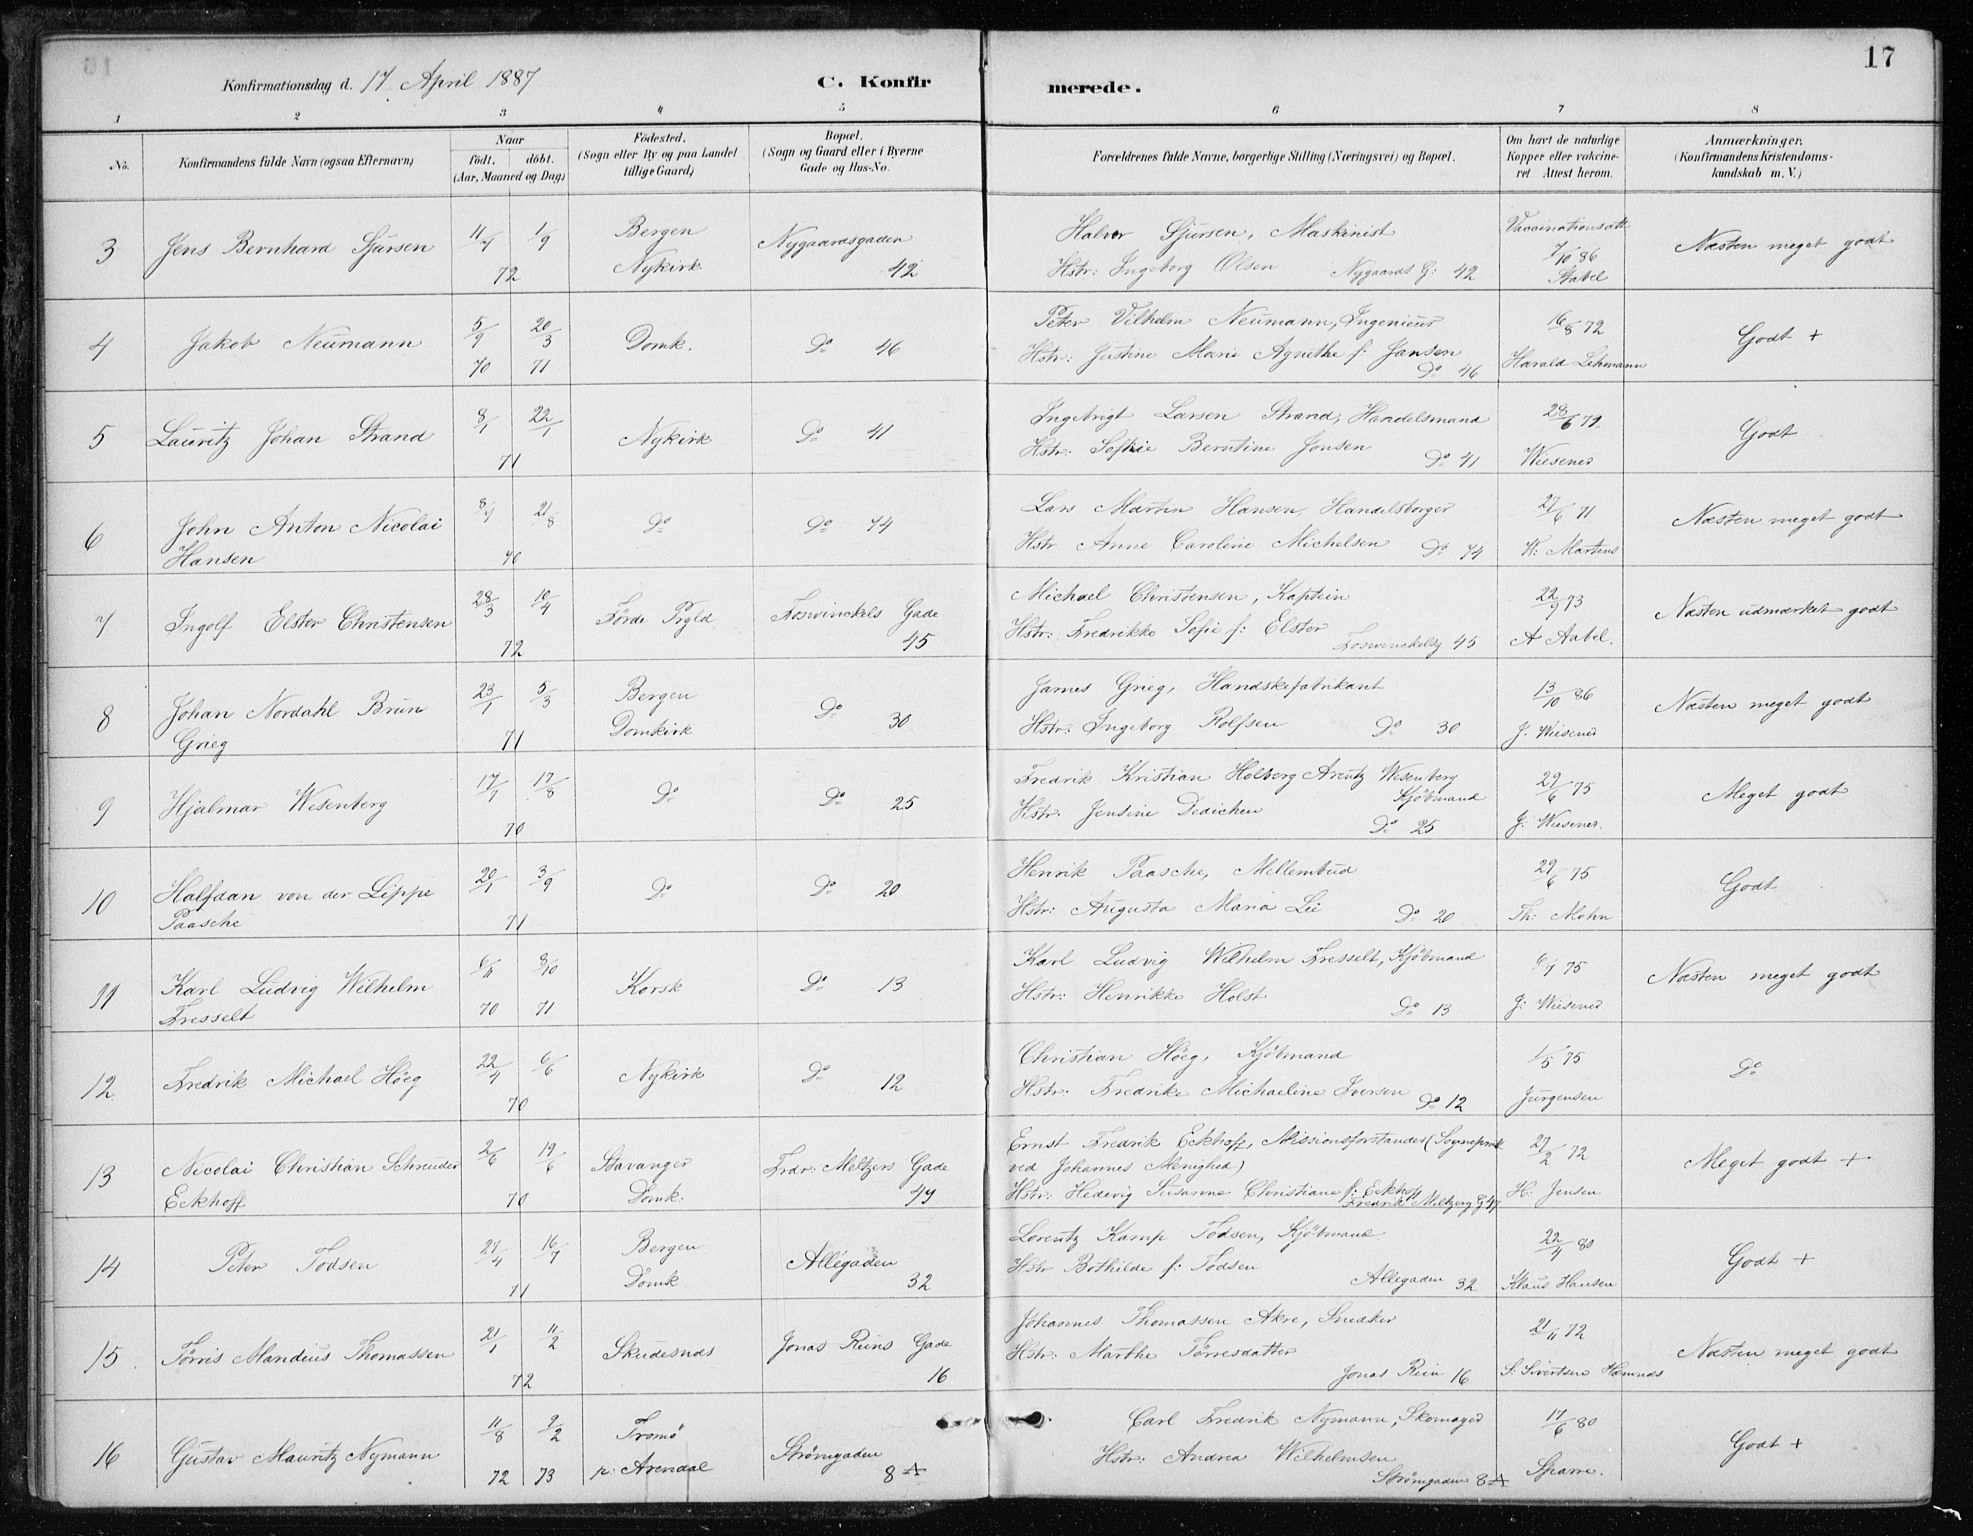 17
Konfirmationsdag d. 17 April 1887
C. Konfir merede.
1 2 3 4 5 6 7 8
No. Konfirmandens fulde Navn (ogsaa Efternavn) Naar födt. döbt. (Aar, Maaned og Dag) Födested. (Sogn eller By og paa Landet tillige Gaard) Bopæl. (Sogn og Gaard eller i Byerne Gade og Hus-No. Forældrenes fulde Navne, borgerlige Stilling (Næringsvei) og Bopæl. Om havt de naturlige Kopper eller vakcineret Attest herom. Anmærkninger. (Konfirmandens Kristendomskundskab m. V.)
3 Jens Bernhard Sjursen 11/7 1/9 Bergen Nygaardsgaden Halvor Sjursen, Maskinist Vaccinationsatt Næsten meget godt
72 Nykirk 42 Hstr: Ingeborg Olsen Nygaards G: 42 7/10 86 Stabel
4 Jakob Neumann 5/9 20/3 Domk. Do 46 Peter Vilhelm Neumann, Ingenieur 16/8 72 Godt +
70 71 Hstr: Justine Marie Agnethe f: Jansen Do 46 Harald Lehmann
5 Lauritz Johan Strand 8/1 22/1 Nykirk Do 41 Ingebrigt Larsen Strand, Handelsmand 28/6 79 Godt
71 Hstr: Sofie Berntine Jonsen Do 41 Wiesener
6 John Anton Nicolai 8/7 21/8 Do Do 74 Lars Martin Hansen, Handelsborger 27/6 71 Næsten meget godt
Hansen 70 Hstr Anne Caroline Michelsen Do 74 W: Martens
7 Ingolf Elster Christensen 28/3 10/4 Førde Prgld Foswinckels Gade Michael Christensen, Kaptein 22/9 73 Næsten udmærket godt
72 45 Hstr: Fredrikke Sofie f: Elster Foswinckelsg 45 A Aabel.
8 Johan Nordahl Brun 23/1 5/3 Bergen Do James Grieg, Handskefabrikant 13/10 86 Næsten meget godt
Grieg 71 Domkirk 30 Hstr: Ingeborg Rolfsen Do 30 J. Wiesener
9 Hjalmar Wesenberg 17/7 17/8 Do Do 25 Fredrik Kristian Holberg Arentz Wesenberg Kjøbmand 29/6 75 Meget godt
70 Hstr: Jensine Dedichen Do 25 J: Wiesener.
10 Halfdan von der Lippe 20/1 3/9 Do Do 20 Henrik Paasche, Mellembud 29/6 75 Godt
Paasche 71 Hstr: Augusta Maria Lie Do 20 Th: Mohn
11 Karl Ludvig Wilhelm 6/11 8/10 Korsk Do 13 Karl Ludvig Wilhelm Fresselt, Kjøbmand 6/7 75 Næsten meget godt
Fresselt 70 71 Hstr: Henrikke Holst Do 13 J: Wiesener
12 Fredrik Michael Höeg 22/4 6/6 Nykirk Do 12 Christian Höeg, Kjøbmand 1/5 75 Do
70 Hstr: Fredrike Michaeline Iversen Do 12 Jürgensen
13 Nicolai Christian Schreuder 2/6 19/6 Stavanger Frdr: Meltzers Gade Ernst Fredrik Eckhoff, Missionsforstander (Sogneprest 27/2 72 Meget godt +
Eckhoff 70 Domk: 47 ved Johannes Menighed)
Hstr: Hedevig Susanne Christiane f: Eckhoff Fredrik Meltzers G 47 H: Jensen
14 Peter Todsen 27/4 16/7 Bergen Allégaden Lorentz Kamp Todsen, Kjøbmand 22/4 80 Godt +
71 Domk 32 Hstr Bothilde f: Todsen Allegaden 32 Klaus Hansen
15 Tørris Mandius Thomassen 21/1 11/2 Skudesnæs Jonas Reins Gade Johannes Thomassen Akre, Snedker 21/11 72 Næsten meget godt
72 16 Hstr: Marthe Tørresdatter Jonas Rein 16 S: Sivertsen Hæmnæs
16 Gustav Mauritz Nymann 11/8 9/2 Tromø Strømgaden Carl Fredrik Nymann, Skomager 17/6 80 Godt +
72 73 p: Arendal 8 A Hstr: Andrea Wilhelmsen Strømgaden 8 A Sparre.